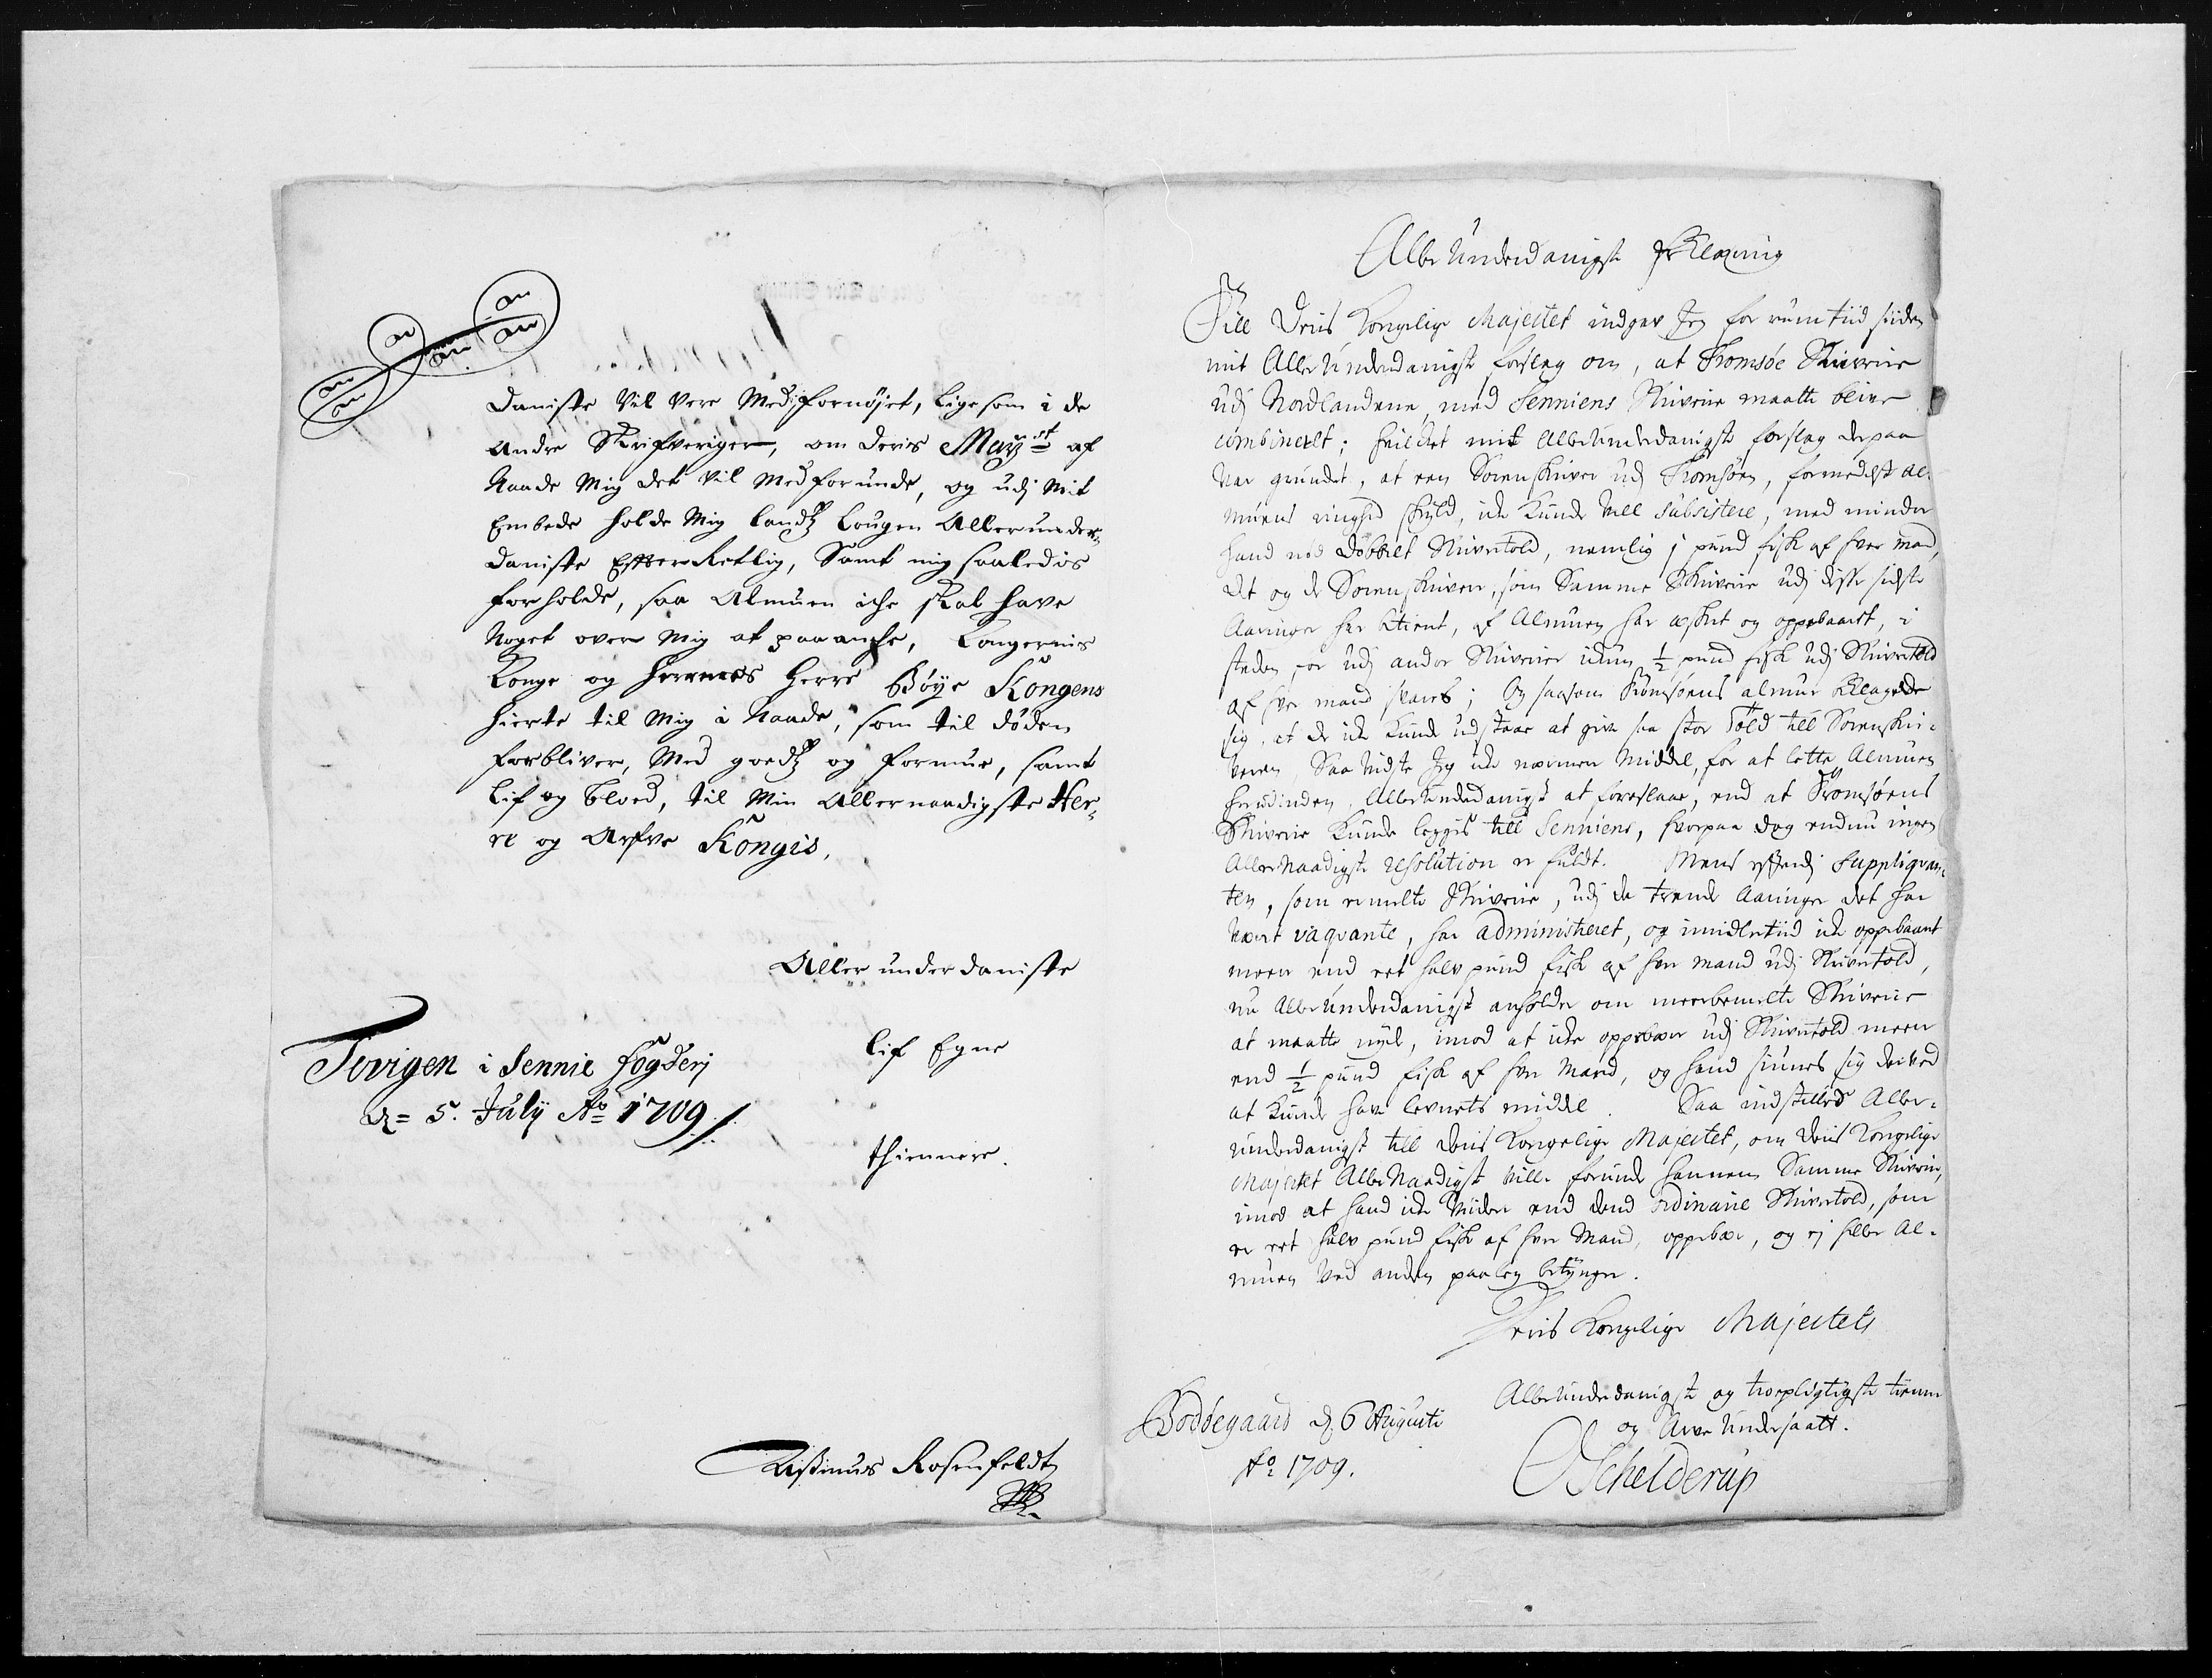 daniste vil vere Med fornøjet, lige som i de
andre Skrifveriger, om deris Mayst af
Naade Mig det vil Medforunde, og udj Mit
Embede holde Mig landtz Lougen Allerunder-
daniste Effter Rettlig, Samt mig saaledis
forholde, saa Almuen iche skal have
Noget over Mig at paaanche, Kongernis
Konge og Herrens Herre Bøye Kongens
hierte til Mig i Naade, som til døden
forbliver, Med goedtz og formue, samt
Lif og bloed, til Min Allernaadigste Her-
re og Arfve Kongis,
Aller under daniste
lif Egne
thiennere.
Tivigen i Sennie fogderj
d= 5. July Ao 1709 /
Rosenfeldt
Aller Underdanigst Erklæring
Till Deris Kongelige Majestet indgav Jeg for rum tiid siiden
mit Aller Underdanigst forslag om, at Tromsøe Skriverie
udj Nordlandene med Senniens Skriverie maatte blive
combinerlt; hvilchet mit Allerunderdanigst forslag derpaa
var grundet, at een Sorenskriver udj Tromsøen, formedelst al-
muens ringhed skyld, icke kunde vell subsistere, med mindre
hand nød dobbelt Skrivertold, nemlig j pund fisk af hver mand,
det og de Sorenskrivere, som Samme Skriverie udj disse sidste
Aaringer har betient, af Almuen har æsket og oppebaaret, i
steden for udj andre Skriverier ickun ½ pund fisk udj Skrivertold
af hver mand svares; Og saasom Tromsøens almue beklagede
sig, at de icke kunde udstaae at give saa stor Told till Sorenskri-
veren, Saa vidste Jeg icke nærmere middel, for at lette Almuen
herudinden, Allerunderdanigst at foreslaae, end at Tromsøens
Skriverie kunde leggis till Senniens, hvorpaa dog endnu ingen
Aller Naadigste resolution er fuldt. Mens efftersom Suppliqvan-
ten, som ermelte Skriverie, udj de trende Aaringer det har
været vaqvante, har administreret, og imidlertiid icke oppebaaret
meere end eet halv pund fisk af hver mand udj Skrivertold,
nu Allerunderdanigst anholder om meerbemelte Skriverie
at maatte nyde, imod at icke oppebære udj Skrivertold meere
end ½ pund fisk af hver Mand, og hand siunes sig derved
at kunde have levnets middel. Saa indstilles Aller-
underdanigst till Deris Kongelige Majestet, om Deris Kongelige
Majestet Aller Naadigst ville forunde hannem Samme Skriverie,
imod at hand icke viidere end dend ordinarie Skrivertold, som
er eet halv pund fisk af hver Mand, oppebær, og ej heller Al-
muen ved anden paaleg betynger.
Deris Kongelige Majestets
Allerunderdanigste og troepligtigste tienner
og Arve Undersaatt.
Bodøegaard d. 6 Augusti
Ao 1709.
OSchelderup